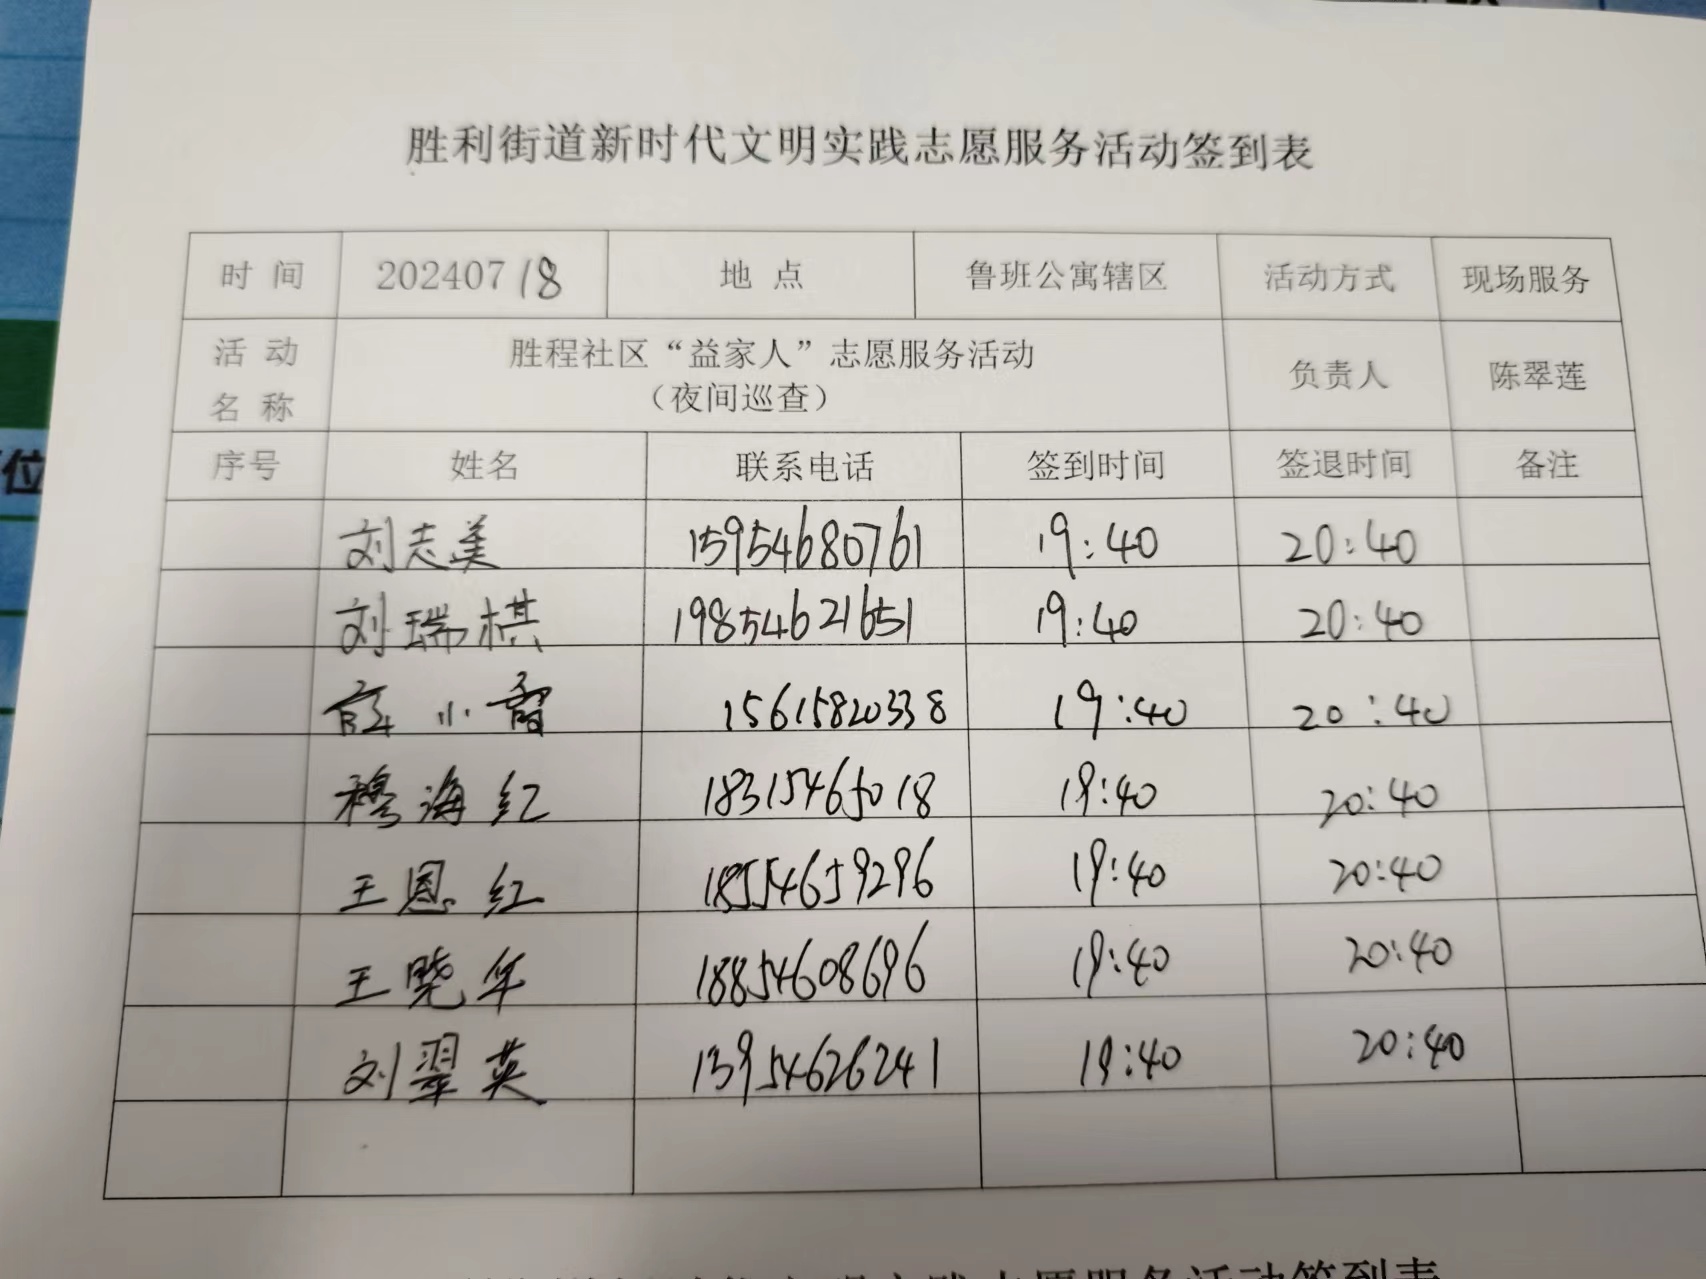 胜利街道新时代文明实践志愿服务活动签到表
时 间 20240718 地 点 鲁班公寓辖区 活动方式 现场服务
活 动 名 称 胜程社区“益家人”志愿服务活动 负责人 陈翠莲
（夜间巡查）
序号 姓名 联系电话 签到时间 签退时间 备注
刘志美 15954680761 19:40 20:40
刘瑞棋 19854621651 19:40 20:40
小 15615820338 19:40 20:40
穆海红 18315465018 19:40 20:40
王恩红 18554659296 19:40 20:40
王晓华 18854608696 19:40 20:40
刘翠英 13954626241 19:40 20:40
志愿服务活动签到表
位